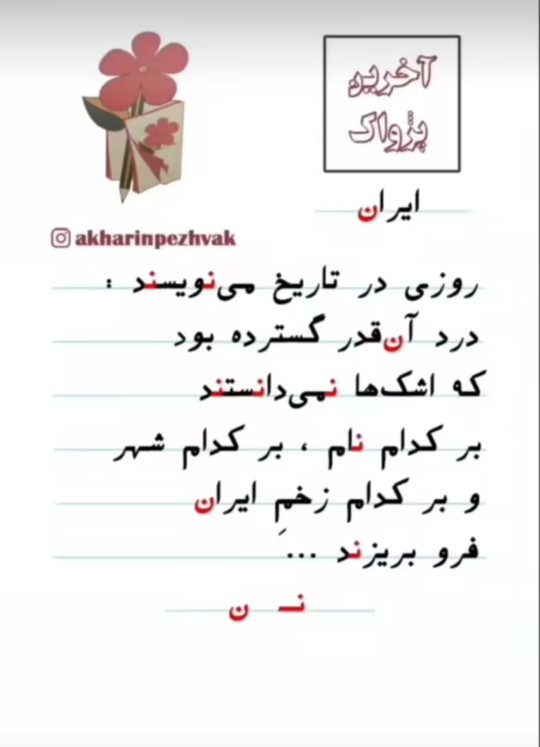 آخرین
پژواک
ایران
akharinpezhvak
روزی در تاریخ می‌نویسند :
درد آن‌قدر گسترده بود
که اشک‌ها نمی‌دانستند
بر کدام نام ، بر کدام شهر
و بر کدام زخمِ ایران
فرو بریزند ...
نـ ن